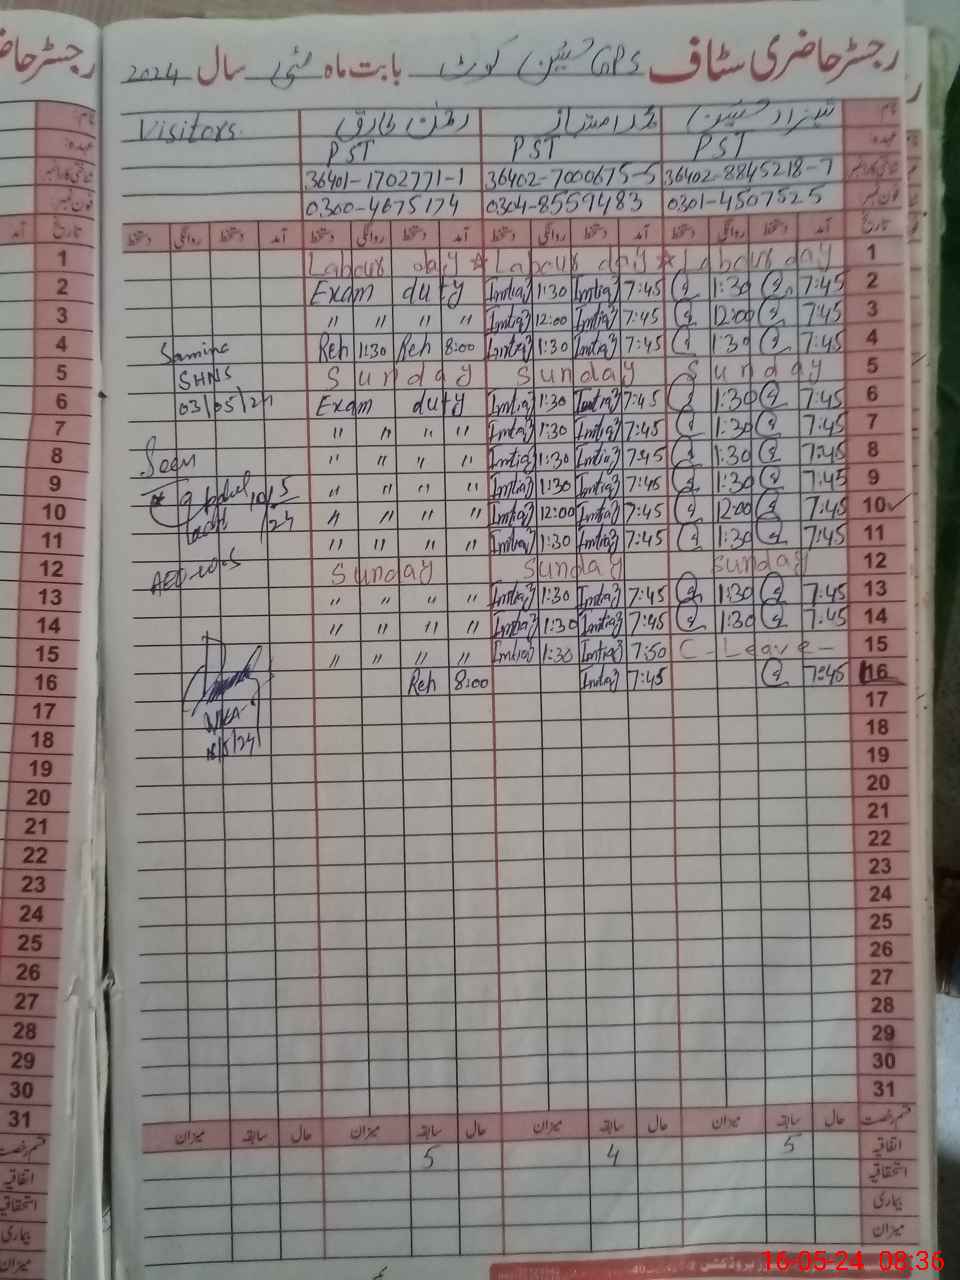 رجسٹر حاضری سٹاف GPS حسین کوٹ بابت ماہ مئی سال 2024
نام: شہزاد حسین محمد امتیاز رحمٰن طارق Visitors.
عہدہ: PST PST PST
شناختی کارڈ نمبر 36402-8845218-7 36402-7000675-5 36401-1702771-1
فون نمبر 0301-4507525 0304-8559483 0300-4675174
تاریخ آمد دستخط روانگی دستخط آمد دستخط روانگی دستخط آمد دستخط روانگی دستخط آمد دستخط روانگی دستخط
Labour day ☆ Labour day ☆ Labour day 1
Exam duty Imtiaz 1:30 Imtiaz 7:45 1:30 7:45 2
" " " " Imtiaz 12:00 Imtiaz 7:45 12:00 7:45 3
Samina Reh 11:30 Reh 8:00 Imtiaz 1:30 Imtiaz 7:45 1:30 7:45 4
SHNS Sunday Sunday Sunday 5
03/05/24 Exam duty Imtiaz 1:30 Imtiaz 7:45 1:30 7:45 6
" " " " Imtiaz 1:30 Imtiaz 7:45 1:30 7:45 7
Seen " " " " Imtiaz 1:30 Imtiaz 7:45 1:30 7:45 8
" " " " Imtiaz 1:30 Imtiaz 7:45 1:30 7:45 9
10/5/24 " " " " Imtiaz 12:00 Imtiaz 7:45 12:00 7:45 10
" " " " Imtiaz 1:30 Imtiaz 7:45 1:30 7:45 11
Sunday Sunday Sunday 12
" " " " Imtiaz 1:30 Imtiaz 7:45 1:30 7:45 13
" " " " Imtiaz 1:30 Imtiaz 7:45 1:30 7:45 14
" " " " Imtiaz 1:30 Imtiaz 7:50 C-Leave- 15
Reh 8:00 Imtiaz 7:45 7:45 16
17
18
19
20
21
22
23
24
25
26
27
28
29
30
31
قسم رخصت حال سابقہ میزان حال سابقہ میزان حال سابقہ میزان حال سابقہ میزان
اتفاقیہ 5 4 5
استحقاقیہ
بیماری
میزان
16-05-24 08:36